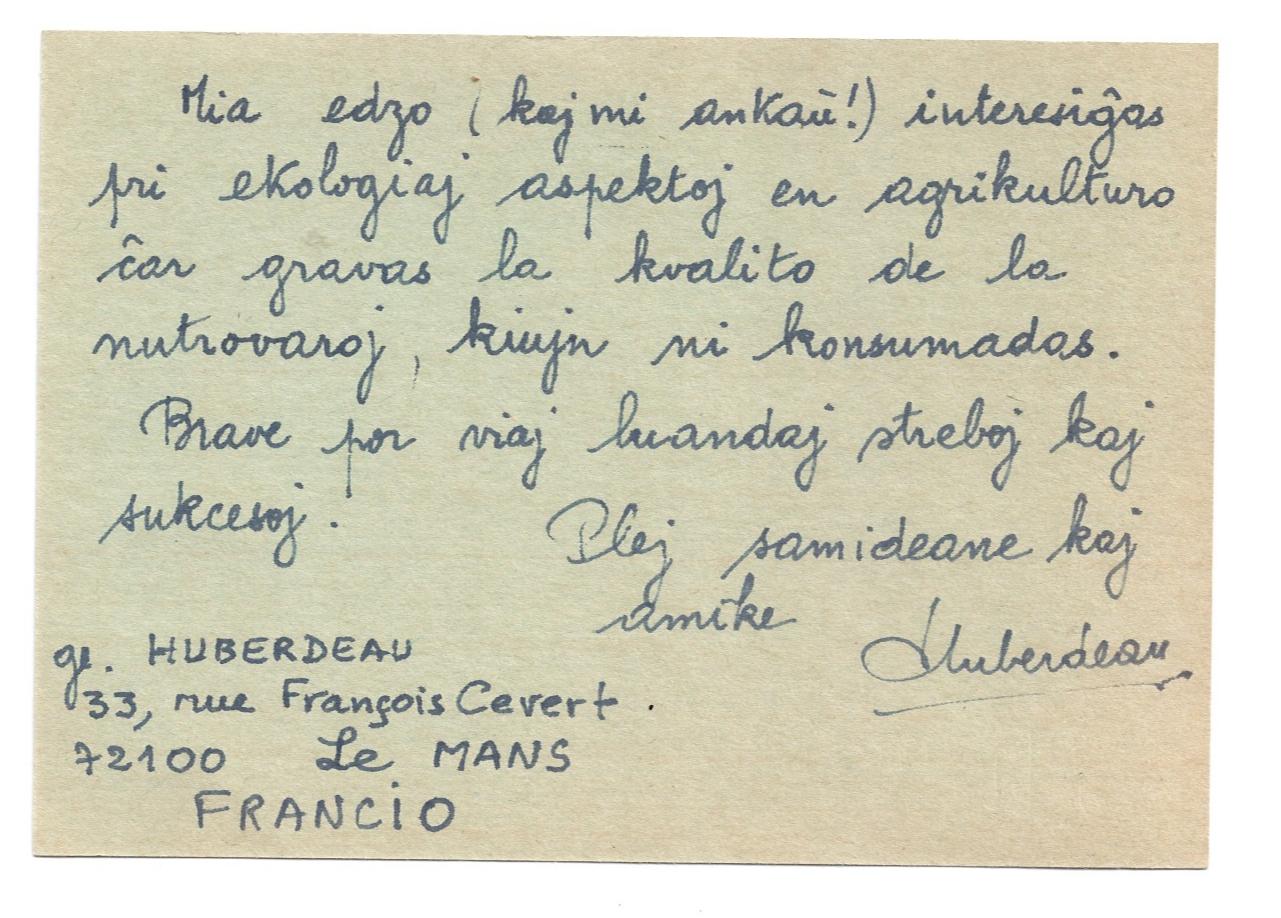 Mia edzo (kaj mi ankaŭ!) interesiĝas
pri ekologiaj aspektoj en agrikulturo
ĉar gravas la kvalito de la
nutrovaroj, kiujn ni konsumadas.
Brave por viaj luandaj streboj kaj
sukcesoj.
Plej samideane kaj
amike
Huberdeau
ge. HUBERDEAU
33, rue François Cevert.
72100 Le MANS
FRANCIO